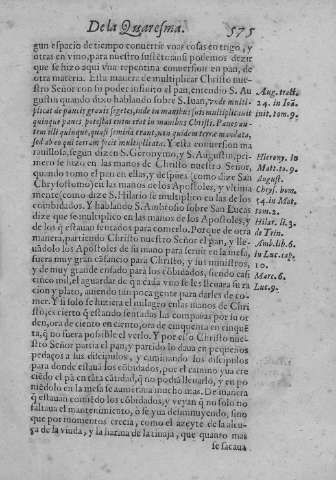 De la Quaresma. 575
gun espacio de tiempo conuertir vnas cosas en trigo, y
otras en vino, para nuestro sustēto assi podemos dezir
que se hizo aqui vna repentina conuersion en pan, de
otra materia. Esta manera de multiplicar Christo nue-
stro Señor con su poder infinito el pan, entendio S. Au
gustin quando dixo hablando sobre S. Iuan, vnde multi-
plicat de paucis granis segetes, inde in manibus suis multiplicauit
quinque panes potestas enim erat in manibus Christi. Panes au-
tem illi quinque, quasi semina erant, non quidem terræ mandata,
sed ab eo qui terram fecit multiplicata. Y esta conuersion ma
rauillosa, segun dizen S. Geronymo, y S. Augustin, pri-
mero se hizo en las manos de Christo nuestro Señor,
quando tomo el pan en ellas, y despues (como dize San
Chrysostomo) en las manos de los Apostoles, y vltima
mente (como dize S. Hilario) se multiplico en las de los
cōbidados. Y hablando S. Ambrosio sobre San Lucas
dize que se multiplico en las manos de los Apostoles, y
de los q̃ estauan sentados para comerlo. Porque de otra
manera, partiendo Christo nuestro Señor el pan, y lle-
uādolo los Apostoles de su mano para seruir en la mesa,
fuera muy gran cāsancio para Christo, y sus ministros,
y de muy grande enfado para los cōbidados, siendo casi
cinco mil, el aguardar de q̃ cada vno se le lleuara su ra
cion y plato, auiendo tan poca gente para darles de co-
mer. Y si solo se hiziera el milagro en las manos de Chri
sto, es cierto q̃ estando sentadas las compañias por su or
den, ora de ciento en ciento, ora de cinquenta en cinquē
ta, q̃ no fuera possible el verlo. Y por esso Christo nue-
stro Señor partia el pan, y partido lo daua en pequeños
pedaços a sus discipulos, y caminando los discipulos
para donde estauan los cōbidados, por el camino yua cre
ciēdo el pā en tāta cātidad, q̃ no podiā lleuarlo, y en po
niēdolo en la mesa se aumentaua mucho mas. De manera
q̃ estauan comiēdo los cōbidados, y veyan q̃ no solo no
faltaua el mantenimiento, o se yua desminuyendo, sino
que por momentos crecia, como el azeyte de la alcu-
ça de la viuda, y la harina de la tinaja, que quanto mas
se sacaua
Aug. tract.
24. in Ioā.
init. tom. 9.
Hierony. lo
Matt. to. 9
August.
Chrys. hom.
in Mat.
tom. 2.
Hilar. li. 3.
de Trin.
Amb. lib. 6.
in Luc. cap.
10.
Marc. 6.
Luc. 9.